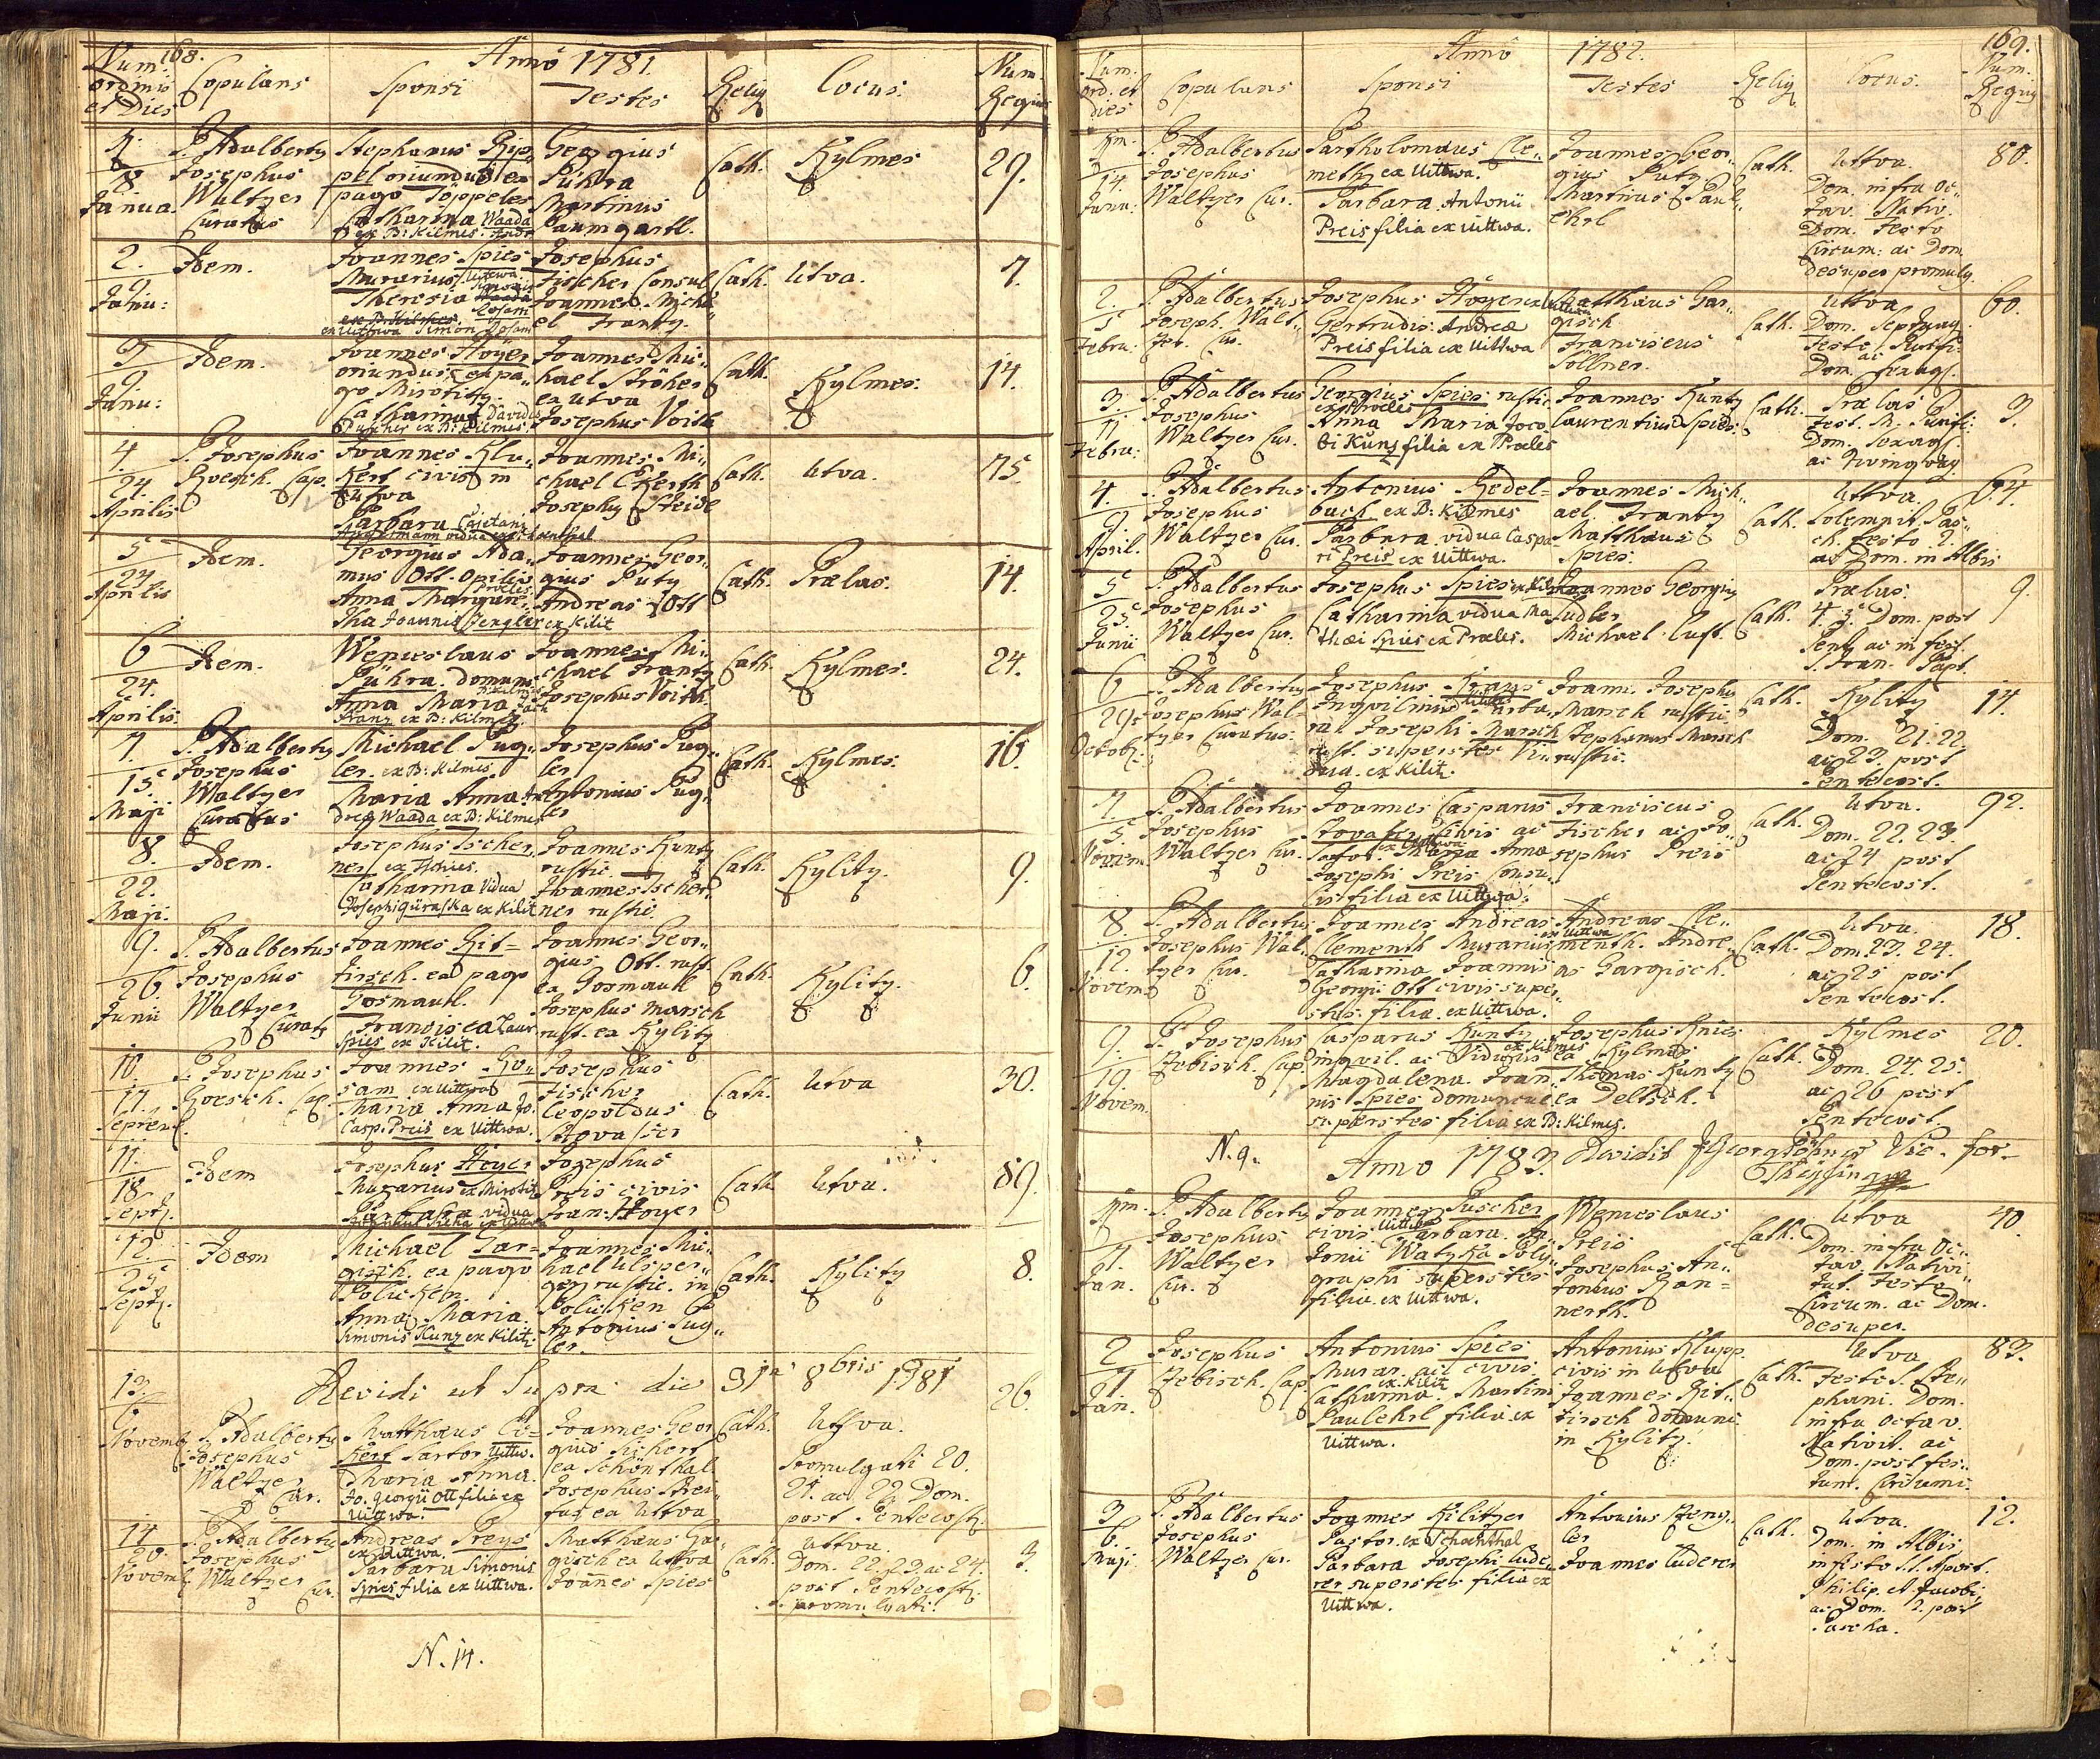 168.
Anno 1781.
Num:
ordinis
et Dies
Copulans
Sponsi
Testes
Relig
Locus.
Num.
Regius
1.
8
Janua.
P. Adalberty
Josephus
Waltzer
Curatus
Stephanus Rip„
pel oriundus ex
pago Töppeles
Catharina Waada
ex B: Kilmes.
Georgius
Pühra
Martinus
Baumgartl.
Cath.
Kylmes
29.
2.
Janu:
Idem.
Joannes Spies
Murarius Uittwa.
Theresia
ex Uittwa Simon Gosam
Josephus
Fischer Consul
Joannes Micha„
el Frantz.
Cath.
Utva.
7.
3
9.
Janu:
Idem.
Joannes Höyer
oriundus ex pa„
go Mirotitz.
Catharina Davidis
ex B: Kilmes
Joannes Mi„
hael Ströher
ex Utva
Josephus Voith
Cath.
Kylmes.
14.
4.
24
Aprilis
P. Josephus
Goesch. Cap.
Joannes Klu„
Kert civis in
Utva
Barbara Cajetani
Joannes Mi„
chael Ekerth
Josephy Steidl
Cath.
Utva.
75.
5
24
Aprilis
Idem.
Georgius Ada„
mus Ott. Opilio
Præles.
Anna Margare„
tha Joannis Zengler ex Kilit
Joannes Geor„
gius Puty
Andreas Ott
Cath.
Prælas.
14.
6
24.
Aprilis.
Idem.
Wenceslaus
Pühra. domunc.
B: Kilmes
Anna Maria
Franz ex B: Kilmes.
Joannes Mi„
chael Frantz
Josephus Voith.
Cath.
Kylmes.
24.
7.
15.
Maji
P. Adalberty
Josephus
Waltzer
Curatus
Michael Pug„
ler. ex B: Kilmes
Maria Anna An
dreæ Waada ex B: Kilmes
Josephus Pug„
ler
Antonius Pug„
ler
Cath.
Kylmes.
16.
8.
22.
Maji.
Idem.
Josephus Tscher„
ner ex Tschies.
Catharina Vidua
Josephi Güraska ex Kilit
Joannes Kuntz
rustic.
Joannes Tscher„
ner rustic.
Cath.
Kylity.
9.
9.
26.
Junii
P. Adalbertus
Josephus
Waltzer
Curaty
Joannes Rit=
tirsch. ex pago
Gosmaul.
Francisca Laur.
Spies ex Kilit.
Joannes Geor„
gius Ott. rust.
ex Gosmaul
Josephus Marsch
rust. ex Kylity
Cath.
Kylity.
6.
10.
17.
Septemb.
P. Josephus
Goesch. Cap.
Joannes Go„
sam ex Uittwa
Maria Anna Jo.
Casp. Preis ex Uittwa.
Josephus
Fischer
Leopoldus
Stovasser
Cath.
Utva
30.
11.
18
Septf.
Idem
Josephus Höyer
Murarius ex Mirotitz
Barbara vidua
Josephus
Preis civis
Joan: Höyer
Cath
Utva.
89.
12.
25
Septf.
Idem
Michael Gar=
gisch. ex pago
Polickien.
Anna Maria
Simonis Kunz ex Kilit.
Joannes Mic„
hael Ulsper„
ger rustic. in
Policken
Antonius Pug„
ler.
Cath.
Kylity
8.
Revidi ut Supra die 31a 8bris 1781
13.
6.
Novemb
P. Adalbertus
Josephus
Waltzer
Cur.
Matthæus Ec=
Kert Sartor Uittw.
Maria Anna
Jo. Georgii Ott filia ex
Uittwa.
Joannes Geor
gius Sichert
ex Schönthal.
Josephus Strei„
tus ex Uttva
Cath.
Uttva.
Promulgati 20.
21. ac 22 Dom.
post Pentecost.
26.
14
20.
Novemb
P. Adalberty
Josephus
Waltzer
Cur.
Andreas Preys
ex Uittwa.
Barbara Simonis
Spies filia ex Uittwa.
Matthæus Ga„
gisch ex Uttva
Joannes Spies
Cath.
Uttva.
Dom. 22. 23. ac 24.
post Pentecost.
promulgati.
3.
N. 14.
169.
Anno 1782.
Num.
ord. et
dies
Copulans
Sponsi
Testes
Relig
Locus.
Num.
Regius
1m.
14.
Janu:
P. Adalbertus
Josephus
Waltzer Cur.
Bartholomæus Cle„
menth ex Uittwa.
Barbara. Antonii
Preis filia ex Uittwa.
Joannes Geor„
gius Puty.
Martinus Paul„
ehrl
Cath.
Uttva.
Dom. infra Oc„
tav. Nativ.
Dom. Festo
Circum: ac Dom.
desuper promulg.
80.
2.
5
Febru:
P. Adalbertus
Joseph. Walt„
zer. Cur.
Josephus Höyer ex Uittwa
Gertrudis Andreæ
Preis filia ex Uittwa
Matthæus Gar„
gisch
Franciscus
Söllner.
Cath.
Uttva
Dom. Septuag.
Festo Purifi:
ac
Dom. Sexag.
60.
3.
11
Febru:
P. Adalbertus
Josephus
Waltzer Cur.
Georgius Spies rustic.
ex Præles
Anna Maria Jaco„
bi Kunz filia ex Præles
Joannes Kuntz
Laurentius Spies.
Cath.
Prælas
Fest. M. Purifi:
Dom. Sexag.
ac Quinquag.
3.
4
9.
April.
P. Adalbertus
Josephus
Waltzer Cur.
Antonius Redel=
buch ex B: Kilmes
Barbara vidua Caspa
ri Preis ex Uittwa.
Joannes Mich„
ael Frantz
Matthæus
Spies.
Cath.
Uttva.
Solemnit. Pas„
ch. festo 2.
ac Dom. in Albis
64.
5
25
Junii
P. Adalbertus
Josephus
Waltzer Cur.
Josephus Spies ex Kil
Catharina vidua Ma
thæi Spies ex Præles.
Joannes Georgius
Sudler
Michael Lust.
Cath.
Prælas.
4. 5. Dom. post
Pent. ac in fest.
S. Joan. Bapt.
9
6
29.
Octob.
P. Adalberty
Josephus Wal=
tzer Curatus.
Josephus Kraus
Inquilinus Uittwa Barba„
ra Josephi Marsch
rust. superstes Vi„
dua. ex Kilit.
Joann. Josephy
Marsch rustic.
Stephanus Marsch
rustic.
Cath.
Kylity
Dom. 21. 22.
ac 23. post
Pentecost.
14.
7
5
Novem
P. Adalbertus
Josephus
Waltzer Cur.
Joannes Casparus
Stovasser Civis ac
ex Uittwa
Sartor. Maria Anna
Josephi Preis Consu„
lis filia ex Uittwa.
Franciscus
Fischer ac Jo„
sephus Preis
Cath.
Utva.
Dom. 22. 23.
ac 24 post
Pentecost.
92.
8.
12
Novem
P. Adalbertus
Josephus Wal„
tzer Cur.
Joannes Andreas
Clementh Murarius
ex Uittwa
Catharina Joannis
Georgii Ott civis super„
stes. filia. ex Uittwa.
Andreas Cle„
menth. Andre„
as Gargisch.
Cath.
Utva.
Dom. 23. 24.
ac 25 post
Pentecost.
18.
9.
19.
Novem.
P. Josephus
Febisch. Cap.
Casparus Kuntz
ex Kilmes
inquil. ac Viduus
Magdalena. Joan„
nis Spies domuncul.
superstes filia ex B: Kilmes.
Josephus Knies
ex Kylmes
Thomas Kuntz
ex Deltsch.
Cath.
Kylmes
Dom. 24. 25.
ac 26 post
Pentecost.
20.
N. 9.
Anno 1783. Revidit Georg Vic. for.
1m.
7.
Jan.
P. Adalberty
Josephus
Waltzer
Cur.
Joannes Puscher
civis Uittwa Barbara. An„
tonii Watzka Poly„
graphi superstes
filia ex Uittwa.
Wenceslaus
Preis
Josephus An„
tonius Ran=
nerth.
Cath.
Utva
Dom. infra Oc„
tav. Nativi„
tat. Festo
Circum. ac Dom.
desuper.
40.
2
7
Jan.
Josephus
Febisch. Cap.
Antonius Spies
Murar. ac civis
ex Kilit
Catharina. Martini
Paulehrl filia ex
Uittwa.
Antonius Klupp.
civis in Utva
Joannes Rit„
tirsch domunc.
in Kylity.
Cath.
Utva
Festo S. Ste„
phani. Dom.
infra Octav.
Nativit. ac
Dom. post fes„
tum. Circumc.
83.
3
6.
Maji
P. Adalbertus
Josephus
Waltzer Cur.
Joannes Kilitzer
Pastor. ex Schoenthal
Barbara Josephi Lude„
rer superstes filia ex
Uittwa.
Antonius Zeng„
ler
Joannes Luderer
Cath.
Utva.
Dom. in Albis
in festo S.S. Apost.
Philip. et Jacobi,
ac Dom. 2. post
Pascha.
12.